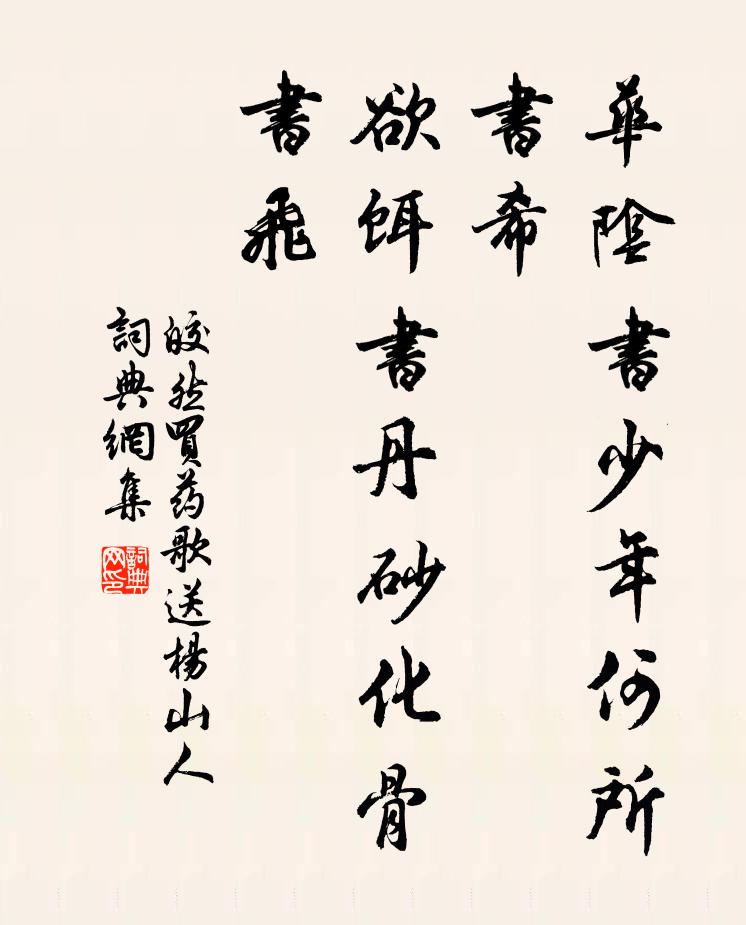 華陰書少年何所
書希
欲餌書丹砂化骨
書飛
皎然買药歌送楊山人
詞典網集
詞典网印